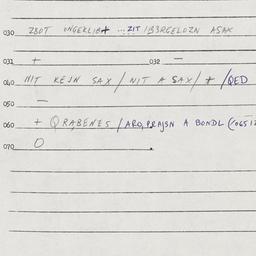 030 ZBOT UNGEKLIBT ... ZIT/BƏRGELOZN ASAK
031 + 032 —
040 NIT KEJN SAX / NIT A SAX / + /QED
050 —
060 + QRABENES / ARO,PRAJSN A BONDL (
070 O